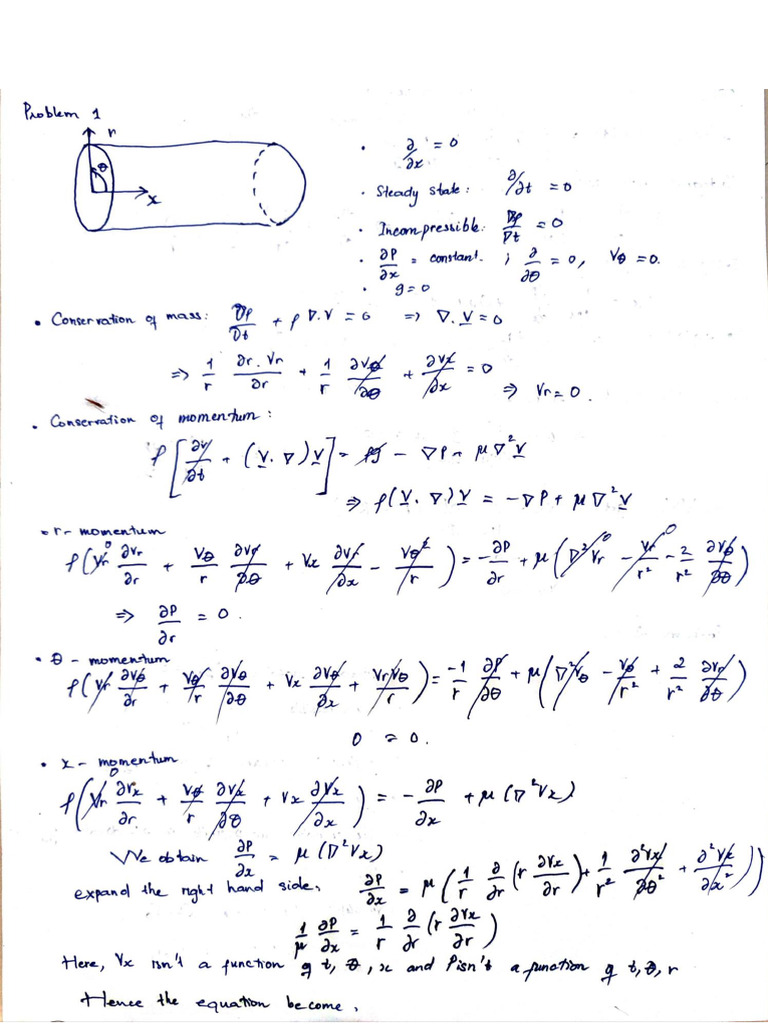 Problem 1
r
θ
x
• ∂/∂x = 0
• Steady state: ∂/∂t = 0
• Incompressible: Dρ/Dt = 0
• ∂P/∂x = constant. ; ∂/∂θ = 0, Vθ = 0.
• g = 0
• Conservation of mass: Dρ/Dt + ρ ∇.V = 0 => ∇.V = 0
=> 1/r ∂r.Vr/∂r + 1/r ∂Vθ/∂θ + ∂Vx/∂x = 0
=> Vr = 0.
• Conservation of momentum:
ρ[∂V/∂t + (V.∇)V] = ρg - ∇P + μ∇²V
=> ρ(V.∇)V = -∇P + μ∇²V
• r - momentum
ρ(Vr ∂Vr/∂r + Vθ/r ∂Vr/∂θ + Vx ∂Vr/∂x - Vθ²/r) = -∂P/∂r + μ(∇²Vr - Vr/r² - 2/r² ∂Vθ/∂θ)
=> ∂P/∂r = 0.
• θ - momentum
ρ(Vr ∂Vθ/∂r + Vθ/r ∂Vθ/∂θ + Vx ∂Vθ/∂x + VrVθ/r) = -1/r ∂P/∂θ + μ(∇²Vθ - Vθ/r² + 2/r² ∂Vr/∂θ)
0 = 0.
• x - momentum
ρ(Vr ∂Vx/∂r + Vθ/r ∂Vx/∂θ + Vx ∂Vx/∂x) = -∂P/∂x + μ(∇²Vx)
We obtain ∂P/∂x = μ(∇²Vx)
expand the right hand side, ∂P/∂x = μ(1/r ∂/∂r (r ∂Vx/∂r) + 1/r² ∂²Vx/∂θ² + ∂²Vx/∂x²))
1/μ ∂P/∂x = 1/r ∂/∂r (r ∂Vx/∂r)
Here, Vx isn't a function of t, θ, x and P isn't a function of t, θ, r
Hence the equation become,